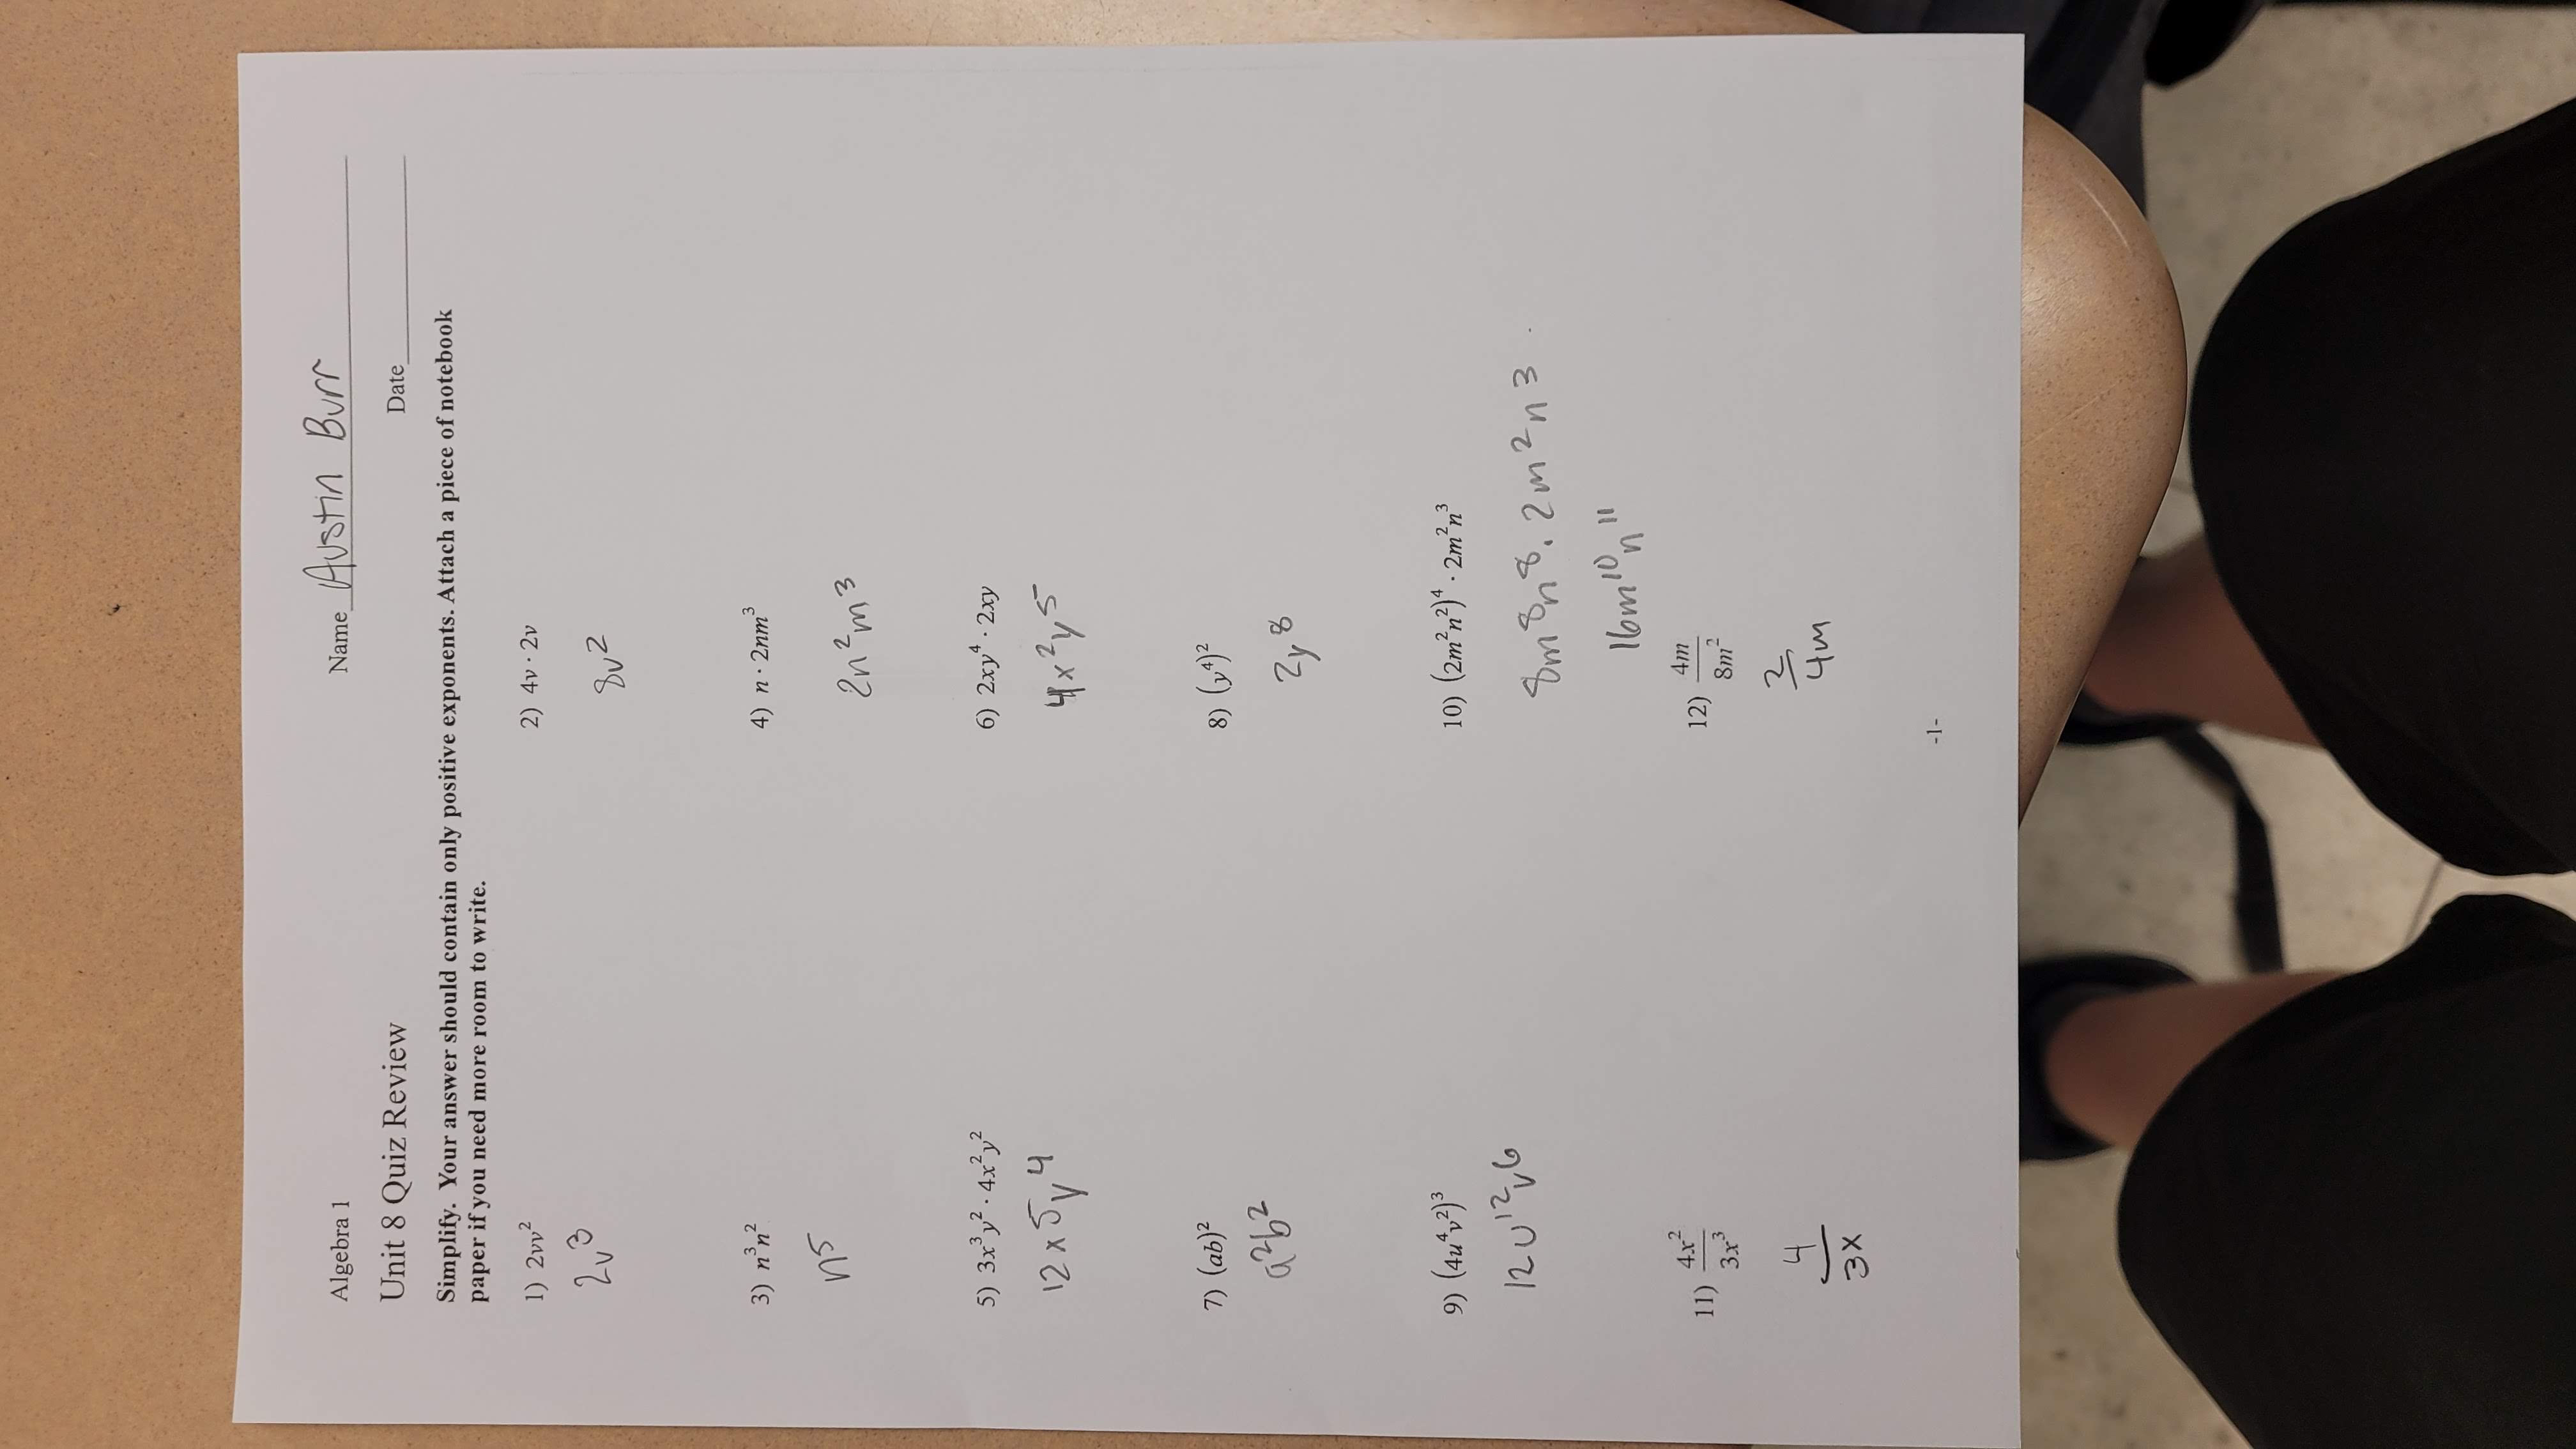 Algebra 1
Name Austin Burr
Unit 8 Quiz Review
Date
Simplify. Your answer should contain only positive exponents. Attach a piece of notebook
paper if you need more room to write.
1) 2vv²
2v³
2) 4v · 2v
8v²
3) n³n²
n5
4) n · 2nm³
2n²m³
5) 3x³y² · 4x²y²
12x5y4
6) 2xy⁴ · 2xy
4x²y5
7) (ab)²
a²b²
8) (y⁴)²
2y8
9) (4u⁴v²)³
12u¹²v6
10) (2m²n²)⁴ · 2m²n³
8m8n8 · 2m²n3
16m¹⁰n¹¹
11) 4x²/3x³
4/3x
12) 4m/8m²
2/4m
-1-